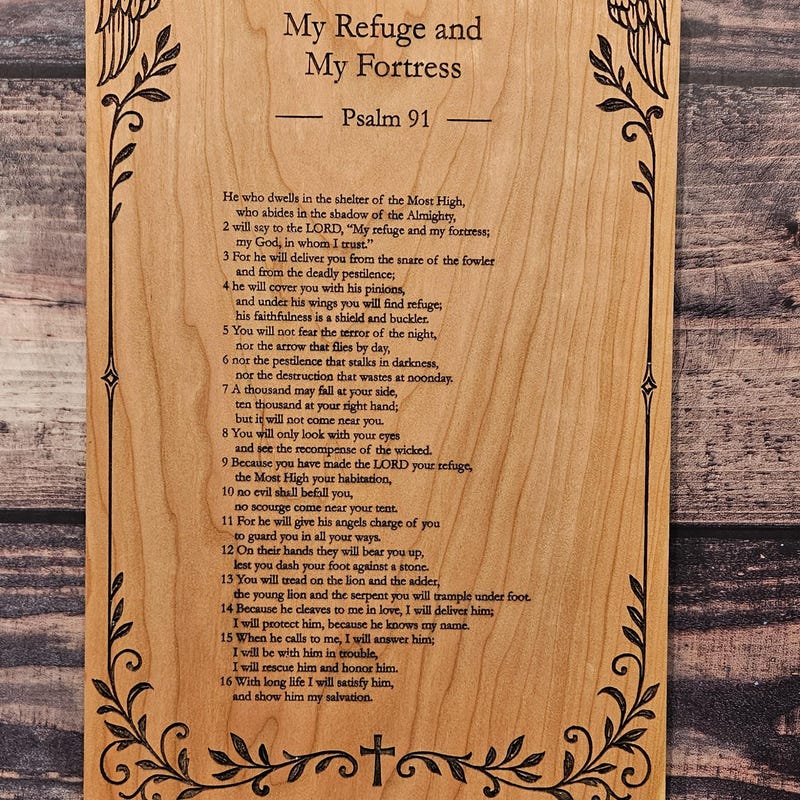 My Refuge and
My Fortress
Psalm 91
He who dwells in the shelter of the Most High,
who abides in the shadow of the Almighty,
2 will say to the LORD, “My refuge and my fortress;
my God, in whom I trust.”
3 For he will deliver you from the snare of the fowler
and from the deadly pestilence;
4 he will cover you with his pinions,
and under his wings you will find refuge;
his faithfulness is a shield and buckler.
5 You will not fear the terror of the night,
nor the arrow that flies by day,
6 nor the pestilence that stalks in darkness,
nor the destruction that wastes at noonday.
7 A thousand may fall at your side,
ten thousand at your right hand;
but it will not come near you.
8 You will only look with your eyes
and see the recompense of the wicked.
9 Because you have made the LORD your refuge,
the Most High your habitation,
10 no evil shall befall you,
no scourge come near your tent.
11 For he will give his angels charge of you
to guard you in all your ways.
12 On their hands they will bear you up,
lest you dash your foot against a stone.
13 You will tread on the lion and the adder,
the young lion and the serpent you will trample under foot.
14 Because he cleaves to me in love, I will deliver him;
I will protect him, because he knows my name.
15 When he calls to me, I will answer him;
I will be with him in trouble,
I will rescue him and honor him.
16 With long life I will satisfy him,
and show him my salvation.